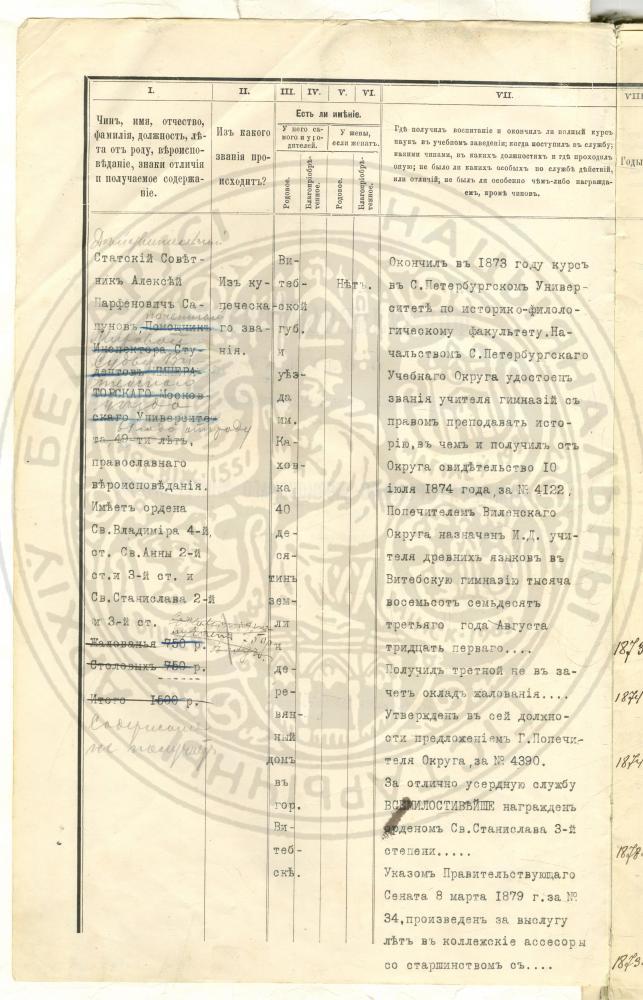 I.
II.
III.
IV.
V.
VI.
VII.
VIII
Чинъ, имя, отчество,
фамилія, должность, лѣ-
та отъ роду, вѣроиспо-
вѣданіе, знаки отличія
и получаемое содержа-
ніе.
Изъ какого
званія про-
исходитъ?
Есть ли имѣніе.
У него са-
мого и у ро-
дителей.
У жены,
если женатъ.
Родовое.
Благопріобрѣ-
тенное.
Родовое.
Благопріобрѣ-
тенное.
Гдѣ получилъ воспитаніе и окончилъ ли полный курсъ
наукъ въ учебномъ заведеніи; когда поступилъ въ службу;
какими чинами, въ какихъ должностяхъ и гдѣ проходилъ
оную; не было ли какихъ особыхъ по службѣ дѣйствій,
или отличій; не былъ ли особенно чѣмъ-либо награжда-
емъ, кромѣ чиновъ.
Годы
Действительный
Статскій Совѣт-
никъ Алексѣй
Парфеновичъ Са-
пуновъ, Помощникъ
Инспектора Сту-
дентовъ ИМПЕРА-
ТОРСКАГО Москов-
скаго Университе-
та 49-ти лѣтъ,
православнаго
вѣроисповѣданія.
Имѣетъ ордена
Св.Владиміра 4-й,
ст. Св.Анны 2-й
ст.и 3-й ст. и
Св.Станислава 2-й
и 3-й ст.
Жалованья 750 р.
Столовыхъ 750 р.
Итого 1500 р.
Содержания
не получаетъ
Изъ ку-
печеска-
го зва-
нія.
Ви-
теб-
ской
губ.
и
уѣз-
да
им.
Ка-
хов-
ка
40
де-
ся-
тинъ
зем-
ли
и
де-
ре-
вян-
ный
домъ
въ
гор.
Ви-
теб-
скѣ.
Нѣтъ.
Окончилъ въ 1873 году курсъ
въ С.Петербургскомъ Универ-
ситетѣ по историко-филоло-
гическому факультету.На-
чальствомъ С.Петербургскаго
Учебнаго Округа удостоенъ
званія учителя гимназій съ
правомъ преподавать исто-
рію,въ чемъ и получилъ отъ
Округа свидѣтельство 10
іюля 1874 года,за № 4122,
Попечителемъ Виленскаго
Округа назначенъ И.Д. учи-
теля древнихъ языковъ въ
Витебскую гимназію тысяча
восемьсотъ семьдесятъ
третьяго года Августа
тридцать перваго....
Получилъ третной не въ за-
четъ окладъ жалованія....
Утвержденъ въ сей должно-
сти предложеніемъ Г.Попечи-
теля Округа,за № 4390.
За отлично усердную службу
ВСЕМИЛОСТИВѢЙШЕ награжденъ
орденомъ Св.Станислава 3-й
степени.....
Указомъ Правительствующаго
Сената 8 марта 1879 г.за №
34,произведенъ за выслугу
лѣтъ въ коллежскіе ассесоры
со старшинствомъ съ....
1873
1874
1874
1878
1873